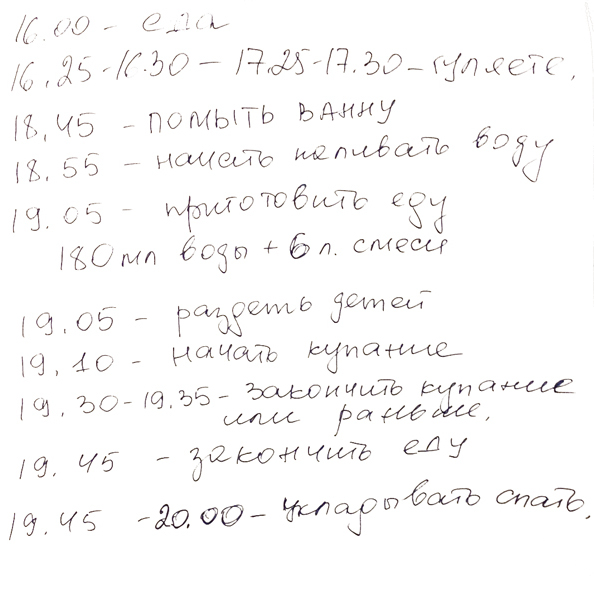 16.00 - еда
16.25-16.30 - 17.25-17.30 - гуляете.
18.45 - помыть ванну
18.55 - начать наливать воду
19.05 - приготовить еду
180 мл воды + 6 л. смеси
19.05 - раздеть детей
19.10 - начать купание
19.30-19.35 - закончить купание
или раньше.
19.45 - закончить еду
19.45 - 20.00 - укладывать спать.